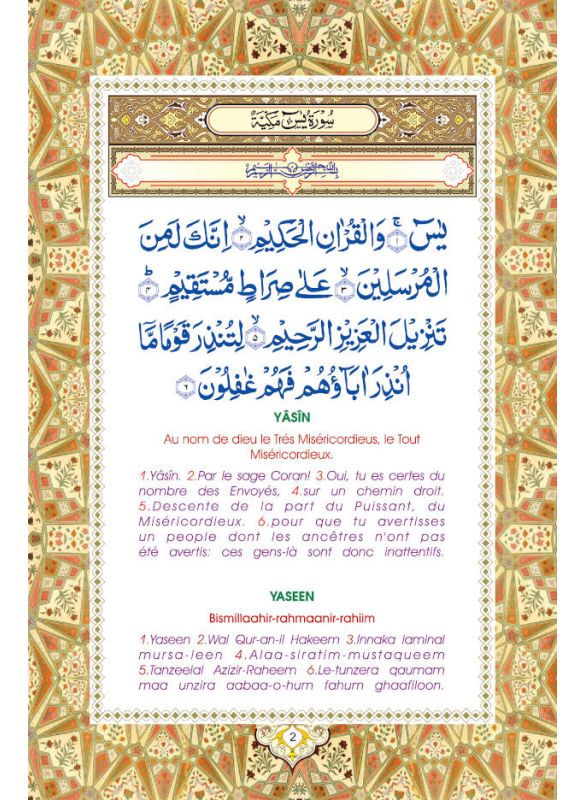 سُوْرَةُ يٰسٓ مَكِّيَّةٌ
بِسْمِ اللّٰهِ الرَّحْمٰنِ الرَّحِيْمِ
يٰسٓ ۚ﴿١﴾ وَالْقُرْاٰنِ الْحَكِيْمِ ۙ﴿٢﴾ اِنَّكَ لَمِنَ
الْمُرْسَلِيْنَ ۙ﴿٣﴾ عَلٰى صِرَاطٍ مُّسْتَقِيْمٍ ؕ﴿٤﴾
تَنْزِيْلَ الْعَزِيْزِ الرَّحِيْمِ ۙ﴿٥﴾ لِتُنْذِرَ قَوْمًا مَّا
اُنْذِرَ اٰبَآؤُهُمْ فَهُمْ غٰفِلُوْنَ ﴿٦﴾
YÂSÎN
Au nom de dieu le Trés Miséricordieus, le Tout
Miséricordieux.
1.Yâsîn. 2.Par le sage Coran! 3.Oui, tu es certes du
nombre des Envoyés, 4.sur un chemin droit.
5.Descente de la part du Puissant, du
Miséricordieux. 6.pour que tu avertisses
un people dont les ancêtres n'ont pas
été avertis: ces gens-là sont donc inattentifs.
YASEEN
Bismillaahir-rahmaanir-rahiim
1.Yaseen 2.Wal Qur-an-il Hakeem 3.Innaka laminal
mursa-leen 4.Alaa-siratim-mustaqueem
5.Tanzeelal Azizir-Raheem 6.Le-tunzera qaumam
maa unzira aabaa-o-hum fahum ghaafiloon.
2